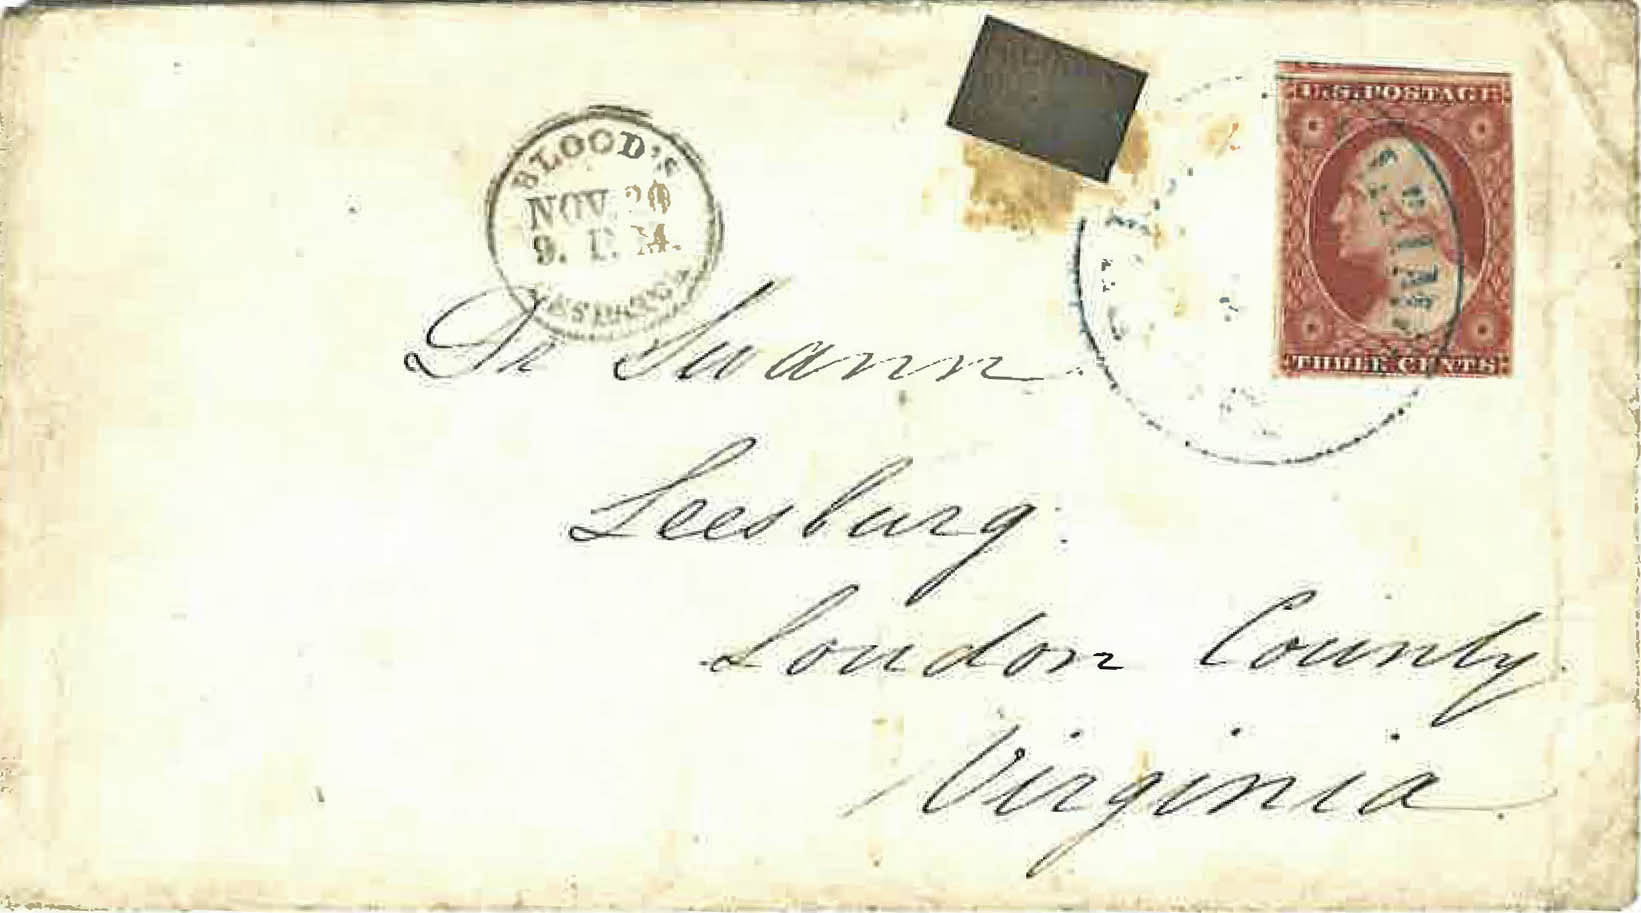 BLOOD'S
NOV. 20
9. P. M.
DESPATCH
U.S. POSTAGE
THREE CENTS
Dr Swann
Leesburg
Loudon County
Virginia